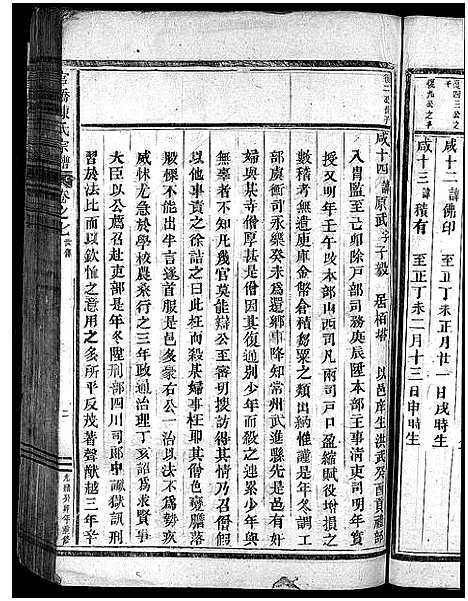 咸十二 諱佛印 至正丁未正月廿一日戌時生
咸十三 諱積有 至正丁未二月十三日申時生
咸十四 諱原武 字子毅 居栢塔 以邑庠生洪武癸酉貢禮部
入胄監至己卯除戶部司務庚辰陞本部主事清吏司明年實
授又明年壬午改本部山西司凡兩司戶口盈縮賦役增損之
數稽考無遺庾庫金幣倉積芻粟之類出納惟謹是年冬調工
部虞衡司永樂癸未為還鄉事降知常州武進縣先是邑有奸
婦與某寺僧厚甚是僧因其復通別少年而殺之連累少年與
無辜者不知凡幾官莫能辯公至審切搜訪得其情乃召僧假
以他事責之徐詰之曰此枉而殺某婦事枉耶其僧色變膽落
股慄不能出半言遂首服是邑多豪右公一治以法不為勢疚
威怵尤急於學校農桑行之三年政通治理丁亥詔為求賢事
大臣以公薦召赴吏部是年冬陞刑部四川司郎中讞獄訊刑
習於法比而以欽恤之意用之多所平反茂著聲猷越三年辛
官橋陳氏宗譜 卷之七 世傳